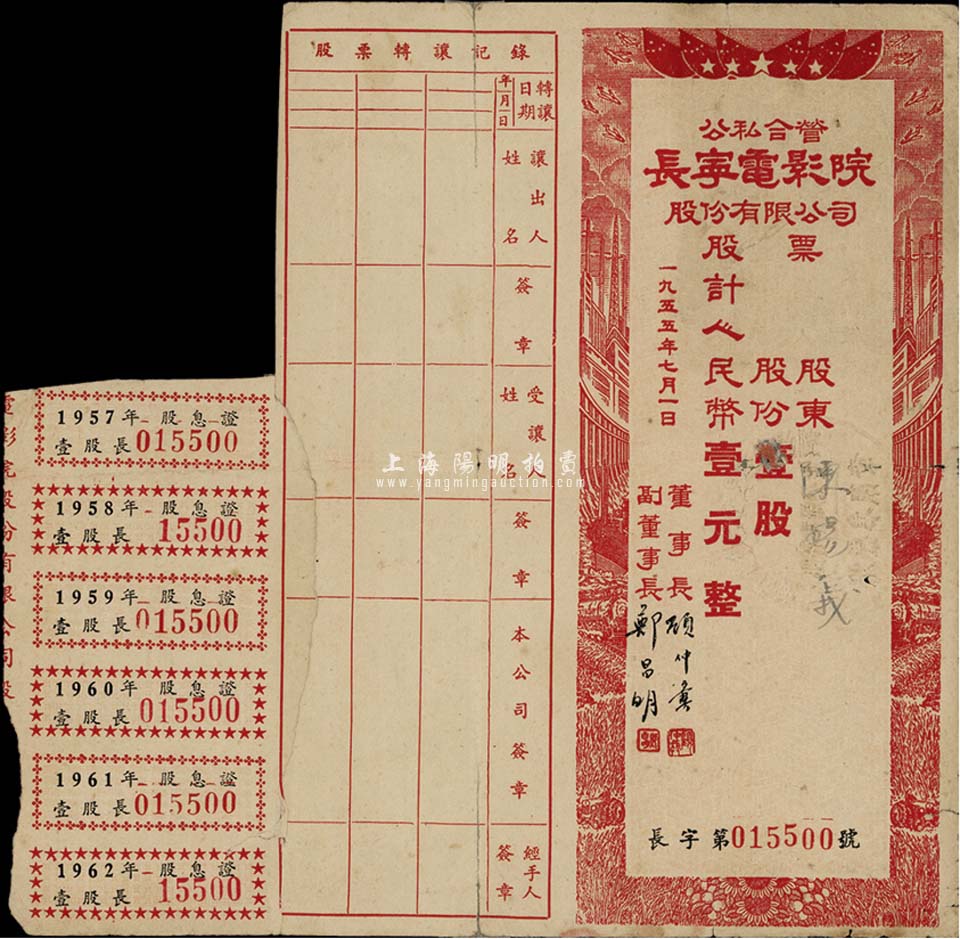 公私合營
長寧電影院
股份有限公司
股票
股東 陳
股份壹股
計人民幣壹元整
一九五五年七月一日
董事長
副董事長 鄭昌明
長字第015500號
股票轉讓記錄
轉讓日期
年月日
讓出人姓名
簽章
受讓人姓名
簽章
本公司簽章
經手人簽章
1957年 股息證
壹股長015500
1958年 股息證
壹股長15500
1959年 股息證
壹股長015500
1960年 股息證
壹股長015500
1961年 股息證
壹股長015500
1962年 股息證
壹股長15500
電影院股份有限公司股
上海陽明拍賣
www.yangmingauction.com